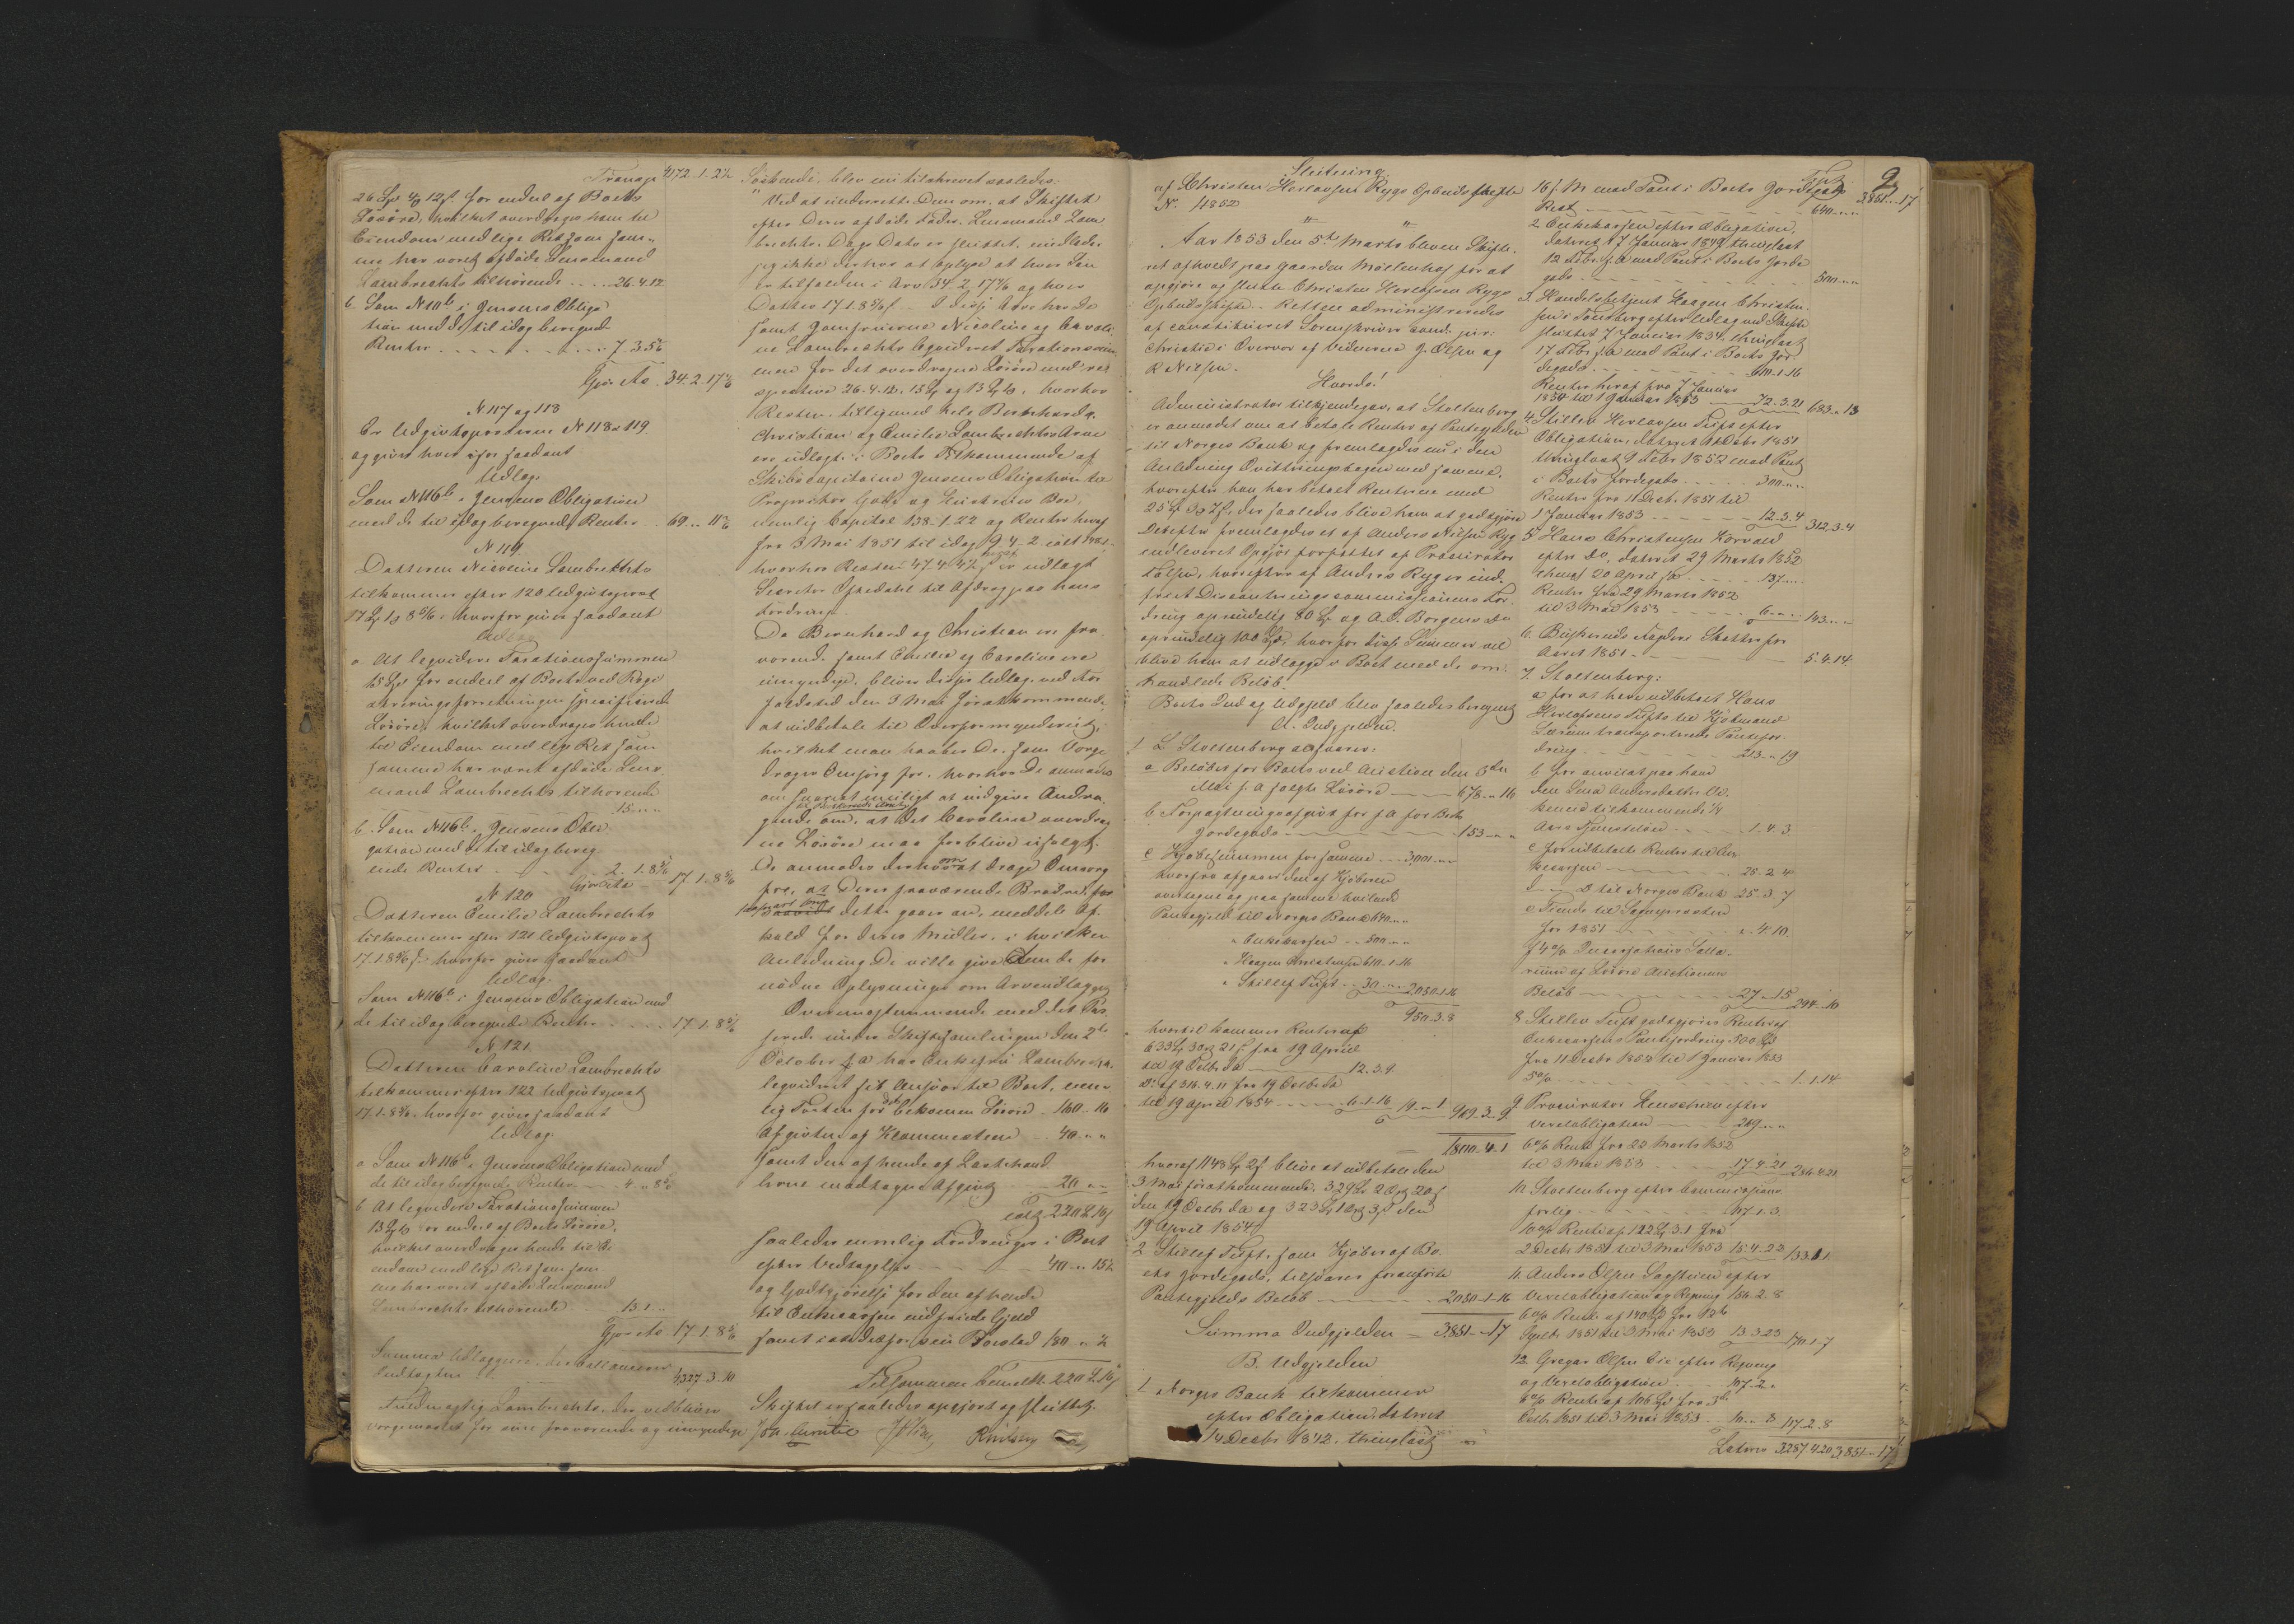 Transp. 4172-1-2½
26 Spd 4 # 12 s. for endeel af Boets
Lösöre, hvilket overdrages ham til
Eiendom med lige Ret som sam-
me har været afdöde Lensmand
Lambrechts tilhörende 26.4.12
b. Som N 116 b i Jensens Obliga
tion med de til idag beregnede
Renter 7.3.5
Gjör Ato 34.2.17
N 117 og 118
Er Udgivtsposterne N 118 & 119
og giver hver især saadant
Udlag.
Som N 116 b i Jensens Obligation
med de til idag beregnede Renter 69 " 11
N 119
Datteren Nicoline Lambrechts
tilkommer efter 120 Udgivtspost
17 Spd 1 # 8 hvorfor gives saadant
Udlag
a. At leqvidere Taxationssummen
15 Spd for endeel af Boets ved Regi
streringsforretningen specificerede
Lösöre, hvilket overdrages hende
til Eiendom med lige Ret som
samme har været afdöde Lens
mand Lambrechts tilhörende
15 " "
b. Som N 116 b i Jensens Obli
gation med de til idag bereg
nede Renter 2.1.8
Gjör Ato 17.1.8
N 120
Datteren Emilie Lambrechts
tilkommer efter 121 Udgivtspost
17.1.8 s. hvorfor gives saadant
Udlag.
Som N 116 b i Jensens Obligation med
de til idag beregnede Renter 17.1.8
N 121
Datteren Caroline Lambrechts
tilkommer efter 122 Udgivtspost
17.1.8 hvorfor gives saadant
Udlag.
a Som N 116 b i Jensens Obligation med
de til idag beregnede Renter 4 " 8
b At leqvidere Taxationssummen
13 Spd 1 # for endeel af Boets Lösöre,
hvilket overdrages hende til Ei
endom med lige Ret som sam
me har været afdöde Lensmand
Lambrechts tilhörende 13.1 "
Gjör Ato 17.1.8
Summa Udlæggene, der ballancerer
Indtægten 4327.3.10
Fuldmægtig Lambrechts, der vil blive
værgemaalet for sine fraværende og umyndige
Södskende, blev nu tilskrevet saaledes:
"Ved at underrette Dem om, at Skiftet
efter Deres afdöde Fader, Lensmand Lam
brechts Dags Dato er sluttet, undlader
jeg ikke derhos at oplyse at hver Sön
er tilfalden i Arv 34.2.17 og hver
Datter 17.1.8 s. I disse Arve har De
samt Jomfruerne Nicoline og Caroli
ne Lambrechts leqvideret Taxationssum
men for det overdragne Lösöre med re
spective 26.4.12, 15 Spd og 13 Spd 1 #, hvorhos
Resten, tilligemed hele Bernhards,
Christian og Emilie Lambrechts Arve
ere udlagte i Boets Tilkommende af
Skibscapitaine Jensens Obligation til
Proprietær Gabe og Hustrues Boe,
nemlig Capital 138-1-22 og Renter heraf
fra 3 Mai 1851 til idag 9.4.2
hvorhos Resten 47.4 er udlagt
Secretær Opsedahl til Afdrag paa hans
Fordring.
Da Bernhard og Christian ere fra
værende samt Emilie og Caroline ere
umyndige, bliver disses Udlag ved For
faldstid den 3 Mai förstkommende
at udbetale til Overformynderiet,
hvilket man haaber De som Værge
drager Omsorg for, hvorhos De anmodes
om snarest muligt at indgive Andra
gende om, at det Caroline overdrag
ne Lösöre maa forblive usolgt.
De anmodes derhos om at drage Omsorg
for, at Deres fraværende Brödre, hvor
dette gaaer an, meddele Af
kald for deres Midler, i hvilken
Anledning De ville give Dem de for
nödne Oplysninger om Arveudlægget.
Overeensstemmende med det Pas
serede under Skiftesamlingen den 2 de
October f. A. har Enkefru Lambrechts
leqvideret sit Ansvar til Boet, nem
lig Taxten for det bekomne Lösöre 160 " 16
Afgivten af Klemmetsen 40 " "
samt den af hende af Laskehand
lerne modtagne Afgivt 20 " "
Ialt 220 " 16
saaledes nemlig Fordringer i Boet
efter Vedtagelse 40 " 15½
og Godtgjörelse for den af hende
til Enkecassen indfriede Gjeld
samt istedetfor sin Bosted 180 " ½
Tilsammen bemeldte 220 " 16
Skiftet er saaledes opgjort og sluttet.
Joh. Christie
Slutning
af Christen Herlovsen Rygs Opbudsskifte
N. 4 1852
Aar 1853 den 5 te Marts blev en Skifte-
ret afholdt paa Gaarden Möllenhof for at
opgjöre og slutte Christen Herlofsen Rygs
Opbudsskifte. Retten administreredes
af constitueret Sorenskriver cand. jur:
Christie i Overvær af Vidnerne J. Olsen og
R Nilsen.
Hvorda!
Administrator tilkjendegav, at Stoltenberg
er anmodet om at betale Renter af Pantegjelden
til Norges Bank og fremlagdes nu i den
Anledning Qvitteringsbogen med samme,
hvorefter han har betalt Renterne med
25 Spd 3 # 7 s., der saaledes blive ham at godtgjöre
Derefter fremlagdes et af Anders Nilsen Ryg
indleveret Opgjör forfattet af Procurator
Falsen, hvorefter af Anders Ryg er ind
friet Disconteringscommissionens For
dring oprindelig 80 Spd og A. C. Borgens Do
oprindelig 100 Spd, hvorfor disse Summer vil
blive ham at udlægge i Boet med de om
handlede Belöb.
Boets Ind og Udgjeld blev saaledes beregnet
A. Indgjelden.
1 L. Stoltenberg ansvarer:
a Belöbet for Boets ved Auction den 3 die
Mai f. A. solgte Lösöre 678 " 16
b Forpagtningsafgivt for f. A. for Boets
Jordegods 153 " "
c Kjöbesummen for samme 3,000 " "
hvorfra afgaaer den af Kjöberen
overtagne og paa samme hvilende
Pantegjeld til Norges Bank 640 " "
" Enkekassen 500 " "
" Haagen Christensen 610-1-16
" Stillef Tuft 300 " " 2050-1-16
950-3-8
hvortil kommer Renter af
633 Spd 3 # 21 s. fra 19 April
til 19 Octbr. d. A. 12.3.9
Do af 316.4.11 fra 19 Octbr. d. A.
til 19 April 1854 6-1-16 19 " 1 969.3.9
1800.4.1
hvoraf 1148 Spd 2 s. blive at udbetale den
3 Mai förstkommende, 329 Spd 2 # 20 s
den 19 Octbr. d. A. og 323 Spd 1 # 3 s den
19 April 1854
2 Stillef Tuft, som Kjöber af Bo
ets Jordegods, tilsvarer foranförte
Pantegjelds Belöb 2050-1-16
Summa Indgjelden 3,851 " 17
B. Udgjelden
1 Norges Bank tilkommer
efter Obligation, dateret
14 Decbr 1842, thinglæst
9
Tspt. 3,851 " 17
16/ M med Pant i Boets Jordegods
Rest 640 " "
2. Enkekassen efter Obligation,
dateret 17 Januar 1849, thinglæst
12 Febr. s. A. med Pant i Boets Jorde
gods 500 " "
3. Handelsbetjent Haagen Christen
sen i Tönsberg efter Udlæg ved Skifte
sluttet 7 Januar 1834, thinglæst
17 Febr. s. A. med Pant i Boets Jor
degods 610-1-16
Renter heraf fra 7 Januar
1850 til 1 Januar 1853 72.3.21 683 " 13
4. Stillev Herlovsen Tufts efter
Obligation, dateret 11 Decbr 1851
thinglæst 9 Febr 1852 med Pant
i Boets Jordegods 300 " "
Renter fra 11 Decbr. 1851 til
1 Januar 1853 12.3.4 312.3.4
5 Hans Christensen Horvald
efter Do, dateret 29 Marts 1852
thingl 20 April s. A. 137 " "
Renter fra 29 Marts 1852
til 3 Mai 1853 6 " " 143 " "
6. Buskeruds Fogderi Skatter for
Aaret 1851 5.4.14
7. Stoltenberg:
a for at have udbetalt Hans
Herlofsens Tufts til Kjöbmand
transporterede Pantefor
dring 213 " 19
b for anviist paa ham
den Lena Andersdatter Od
tilkommende ¼
Aars Tjenestelön 1.4.3
c for udbetalte Renter til En
kecassen 25-2-4
d Do til Norges Bank 25-3-7
e Tiende til Sognepræsten
for 1851 " 4.10
f 4 % Incassations Salla
rium af Lösöre Auctionens
Belöb 27 " 15 294 " 10
8 Stillev Tuft godtgjöres Renter af
Enkecassens Pantefordring 500 Spd
fra 11 Decbr 1852 til 1 Januar 1853
5 % 1.1.14
9 Procurator Henschien efter
Vexelobligation 269 " "
6 % Rente fra 22 Marts 1852
til 3 Mai 1853 17.4.21 286.4.21
10. Stoltenberg efter Commissions
forlig 117.1.3.
10 % Rente af 122 Spd 3.1 fra
2 Decbr 1851 til 3 Mai 1853 15.4.22 133.1.1.
11. Anders Olsen Sagstuen efter
Vexelobligation og Regning 156.2.8
6 % Rente af 140 Spd fra 18 de
Septb. 1851 til 3 Mai 1853 13.3.23 170.1.7
12. Gregar Olsen Eie efter Regning
og Vexelobligation 107-2 "
6 % Rente af 106 Spd fra 3 de
Octb. 1851 til 3 Mai 1853 10 " 8 117-2-8
Lateris 3287.4.20 3,851 " 17